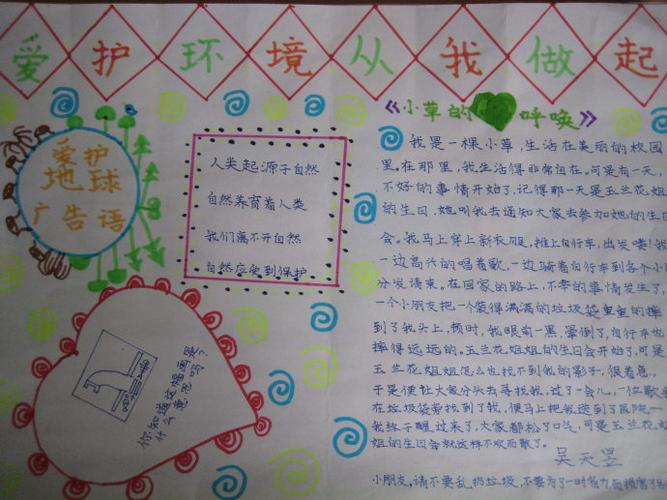 爱护环境从我做起
爱护
地球
广告语
人类起源于自然
自然养育着人类
我们离不开自然
自然应受到保护
你知道这幅画是
什么意思吗?
《小草的呼唤》
我是一棵小草,生活在美丽的校园
里。在那里,我生活得非常自在。可是有一天,
不好的事情开始了,记得那一天是玉兰花姐
姐的生日,她叫我去通知大家去参加她的生日
会。我马上穿上新衣服,推上自行车,出发喽!我
一边高兴的唱着歌,一边骑着自行车到各个小
分发请柬。在回家的路上,不幸的事情发生了,
一个小朋友把一个装得满满的垃圾袋重重的摔
到了我头上,顿时,我眼前一黑,晕倒了,自行车也
摔得远远的。玉兰花姐姐的生日会开始了,可是
玉兰花姐姐怎么也找不到我的影子,很着急,
于是便让大家分头去寻找我,过了一会儿,一位
在垃圾袋旁找到了我,便马上把我送到了医院
我终于醒过来了,大家都松了口气,可是玉兰花
姐的生日会就这样不欢而散了。
吴天昱
小朋友,请不要乱扔垃圾,不要为了一时省力而